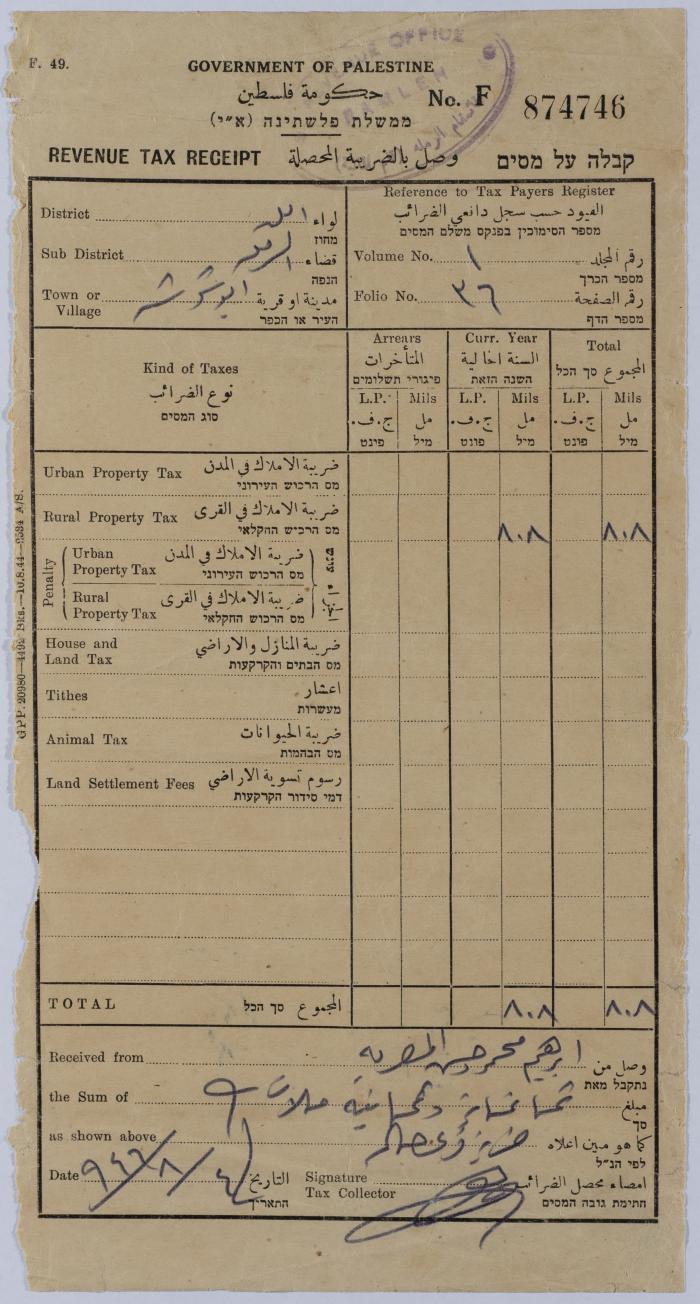 F. 49.
GOVERNMENT OF PALESTINE
حكومة فلسطين
ממשלת פלשתינה (א״י)
No. F 874746
REVENUE TAX RECEIPT وصل بالضريبة المحصلة קבלה על מסים
OFFICE
District لواء اللد
מחוז
Sub District قضاء الرملة
הנפה
Town or Village مدينة او قرية ابو شوشة
העיר או הכפר
Reference to Tax Payers Register
القيود حسب سجل دافعي الضرائب
מספר הסימוכין בפנקס משלם המסים
Volume No. ١ رقم المجلد
מספר הכרך
Folio No. ٣٦ رقم الصفحة
מספר הדף
Kind of Taxes
نوع الضرائب
סוג המסים
Arrears
المتأخرات
פיגורי תשלומים
Curr. Year
السنة الحالية
השנה הזאת
Total
المجموع סך הכל
L.P. Mils L.P. Mils L.P. Mils
ج.ف. مل ج.ف. مل ج.ف. مل
פונט מיל פונט מיל פונט מיל
Urban Property Tax ضريبة الاملاك في المدن
מס הרכוש העירוני
Rural Property Tax ضريبة الاملاك في القرى
מס הרכוש החקלאי
٨٠٨ ٨٠٨
Penalty
Urban Property Tax ضريبة الاملاك في المدن
מס הרכוש העירוני
Rural Property Tax ضريبة الاملاك في القرى
מס הרכוש החקלאי
עונש
House and Land Tax ضريبة المنازل والاراضي
מס הבתים והקרקעות
Tithes اعشار
מעשרות
Animal Tax ضريبة الحيوانات
מס הבהמות
Land Settlement Fees رسوم تسوية الاراضي
דמי סידור הקרקעות
TOTAL المجموع סך הכל
٨٠٨ ٨٠٨
Received from وصل من
ابرهيم محمد حسن
נתקבל מאת
the Sum of مبلغ
ثمانماية وثمانية ملات
סך
as shown above كما هو مبين اعلاه
לפי הנ״ל
Date ٩٤٦/٨/٤ التاريخ
התאריך
Signature Tax Collector امضاء محصل الضرائب
חתימת גובה המסים
GPP. 20980—4492 Bks.—10.8.44—2534 A/S.